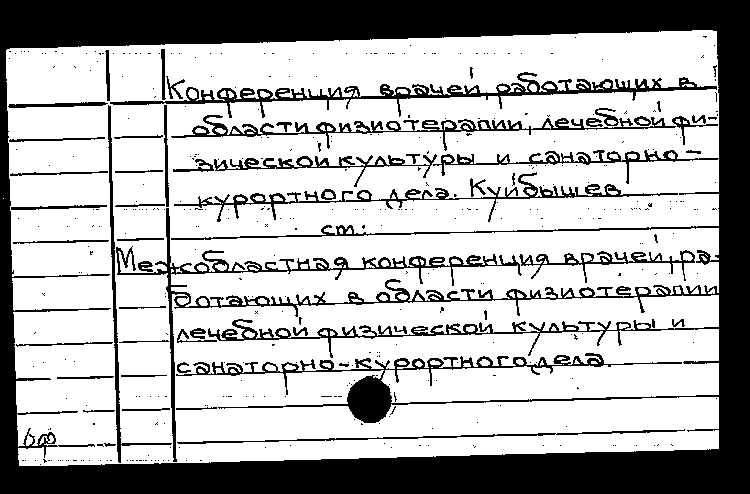 Конференция врачей, работающих в
области физиотерапии, лечебной фи-
зической культуры и санаторно-
курортного дела. Куйбышев
см:
Межобластная конференция врачей, ра-
ботающих в области физиотерапии
лечебной физической культуры и
санаторно-курортного дела.